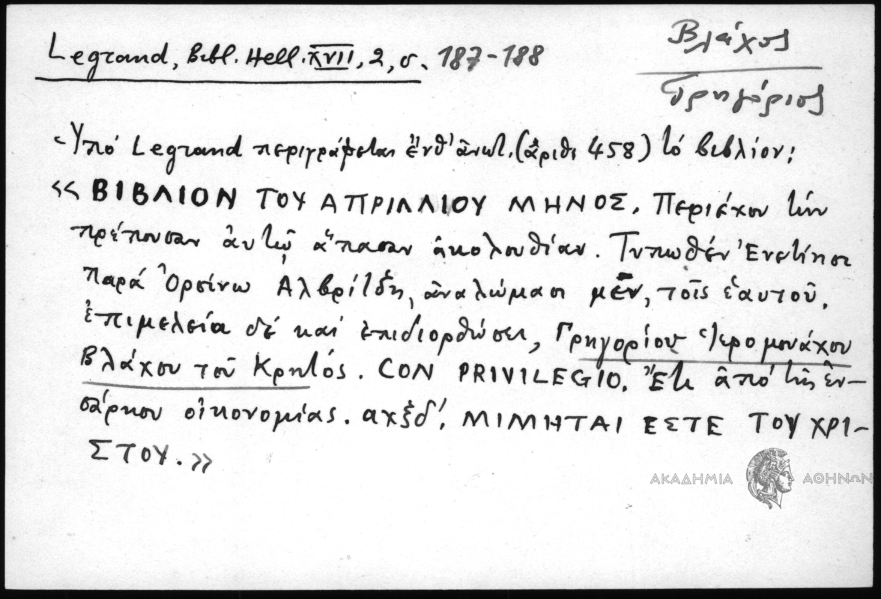 Legrand, Bibl. Hell. XVII, 2, σ. 187-188
Βλάχος
Γρηγόριος
Ὑπό Legrand περιγράφεται ἔνθ' ἀνωτ. (ἀριθ. 458) τό βιβλίον:
«ΒΙΒΛΙΟΝ ΤΟΥ ΑΠΡΙΛΛΙΟΥ ΜΗΝΟΣ. Περιέχον τὴν
πρέπουσαν ἀυτῷ ἅπασαν ἀκολουθίαν. Τυπωθέν Ἐνετίησι
παρά Ὀρσίνῳ Ἀλβρίτζῃ, ἀναλώμασι μὲν, τοῖς ἑαυτοῦ,
ἐπιμελεία δέ καί ἐπιδιορθώσει, Γρηγορίου Ἱερομονάχου
Βλάχου τοῦ Κρητός. CON PRIVILEGIO. Ἔτι ἀπό τῆς ἐν-
σάρκου οἰκονομίας. αχξδ'. ΜΙΜΗΤΑΙ ΕΣΤΕ ΤΟΥ ΧΡΙ-
ΣΤΟΥ.»
ΑΚΑΔΗΜΙΑ ΑΘΗΝΩΝ